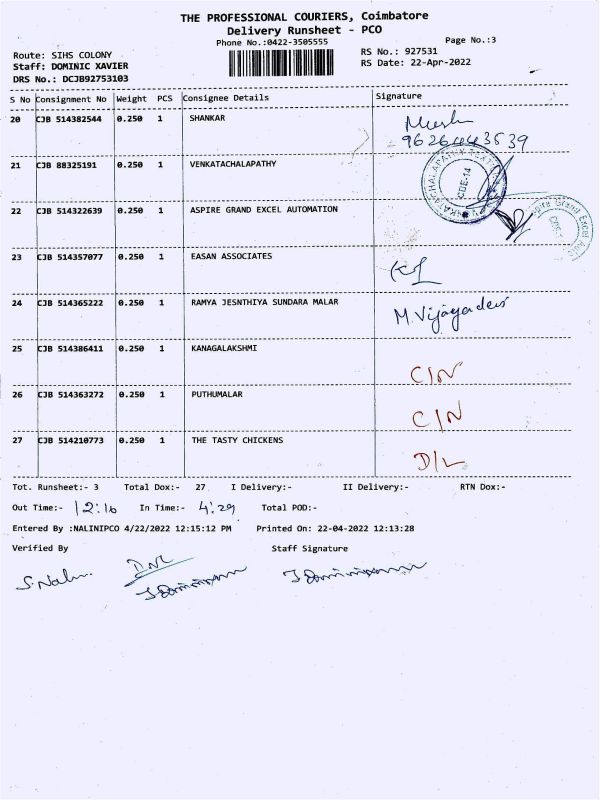 THE PROFESSIONAL COURIERS, Coimbatore
Delivery Runsheet - PCO
Phone No.:0422-3505555
Page No.:3
Route: SIHS COLONY
RS No.: 927531
Staff: DOMINIC XAVIER
RS Date: 22-Apr-2022
DRS No.: DCJB92753103
S No Consignment No Weight PCS Consignee Details Signature
20 CJB 514382544 0.250 1 SHANKAR
21 CJB 88325191 0.250 1 VENKATACHALAPATHY
22 CJB 514322639 0.250 1 ASPIRE GRAND EXCEL AUTOMATION
23 CJB 514357077 0.250 1 EASAN ASSOCIATES
24 CJB 514365222 0.250 1 RAMYA JESNTHIYA SUNDARA MALAR M. Vijayadevi
25 CJB 514386411 0.250 1 KANAGALAKSHMI C/N
26 CJB 514363272 0.250 1 PUTHUMALAR C/N
27 CJB 514210773 0.250 1 THE TASTY CHICKENS D/L
Tot. Runsheet:- 3 Total Dox:- 27 I Delivery:- II Delivery:- RTN Dox:-
Out Time:- 12:16 In Time:- 4:29 Total POD:-
Entered By :NALINIPCO 4/22/2022 12:15:12 PM Printed On: 22-04-2022 12:13:28
Verified By Staff Signature